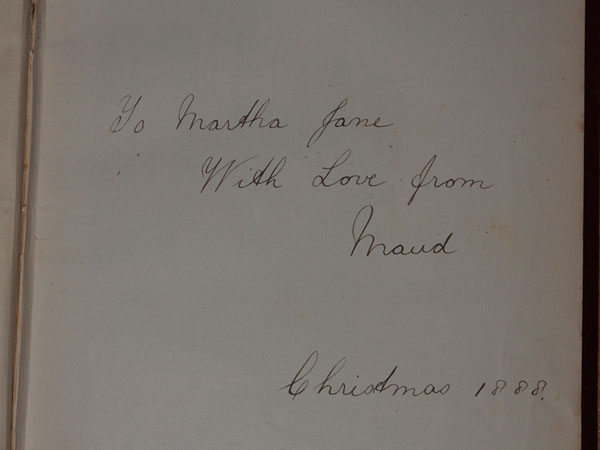 To Martha Jane
With Love from
Maud
Christmas 1888.